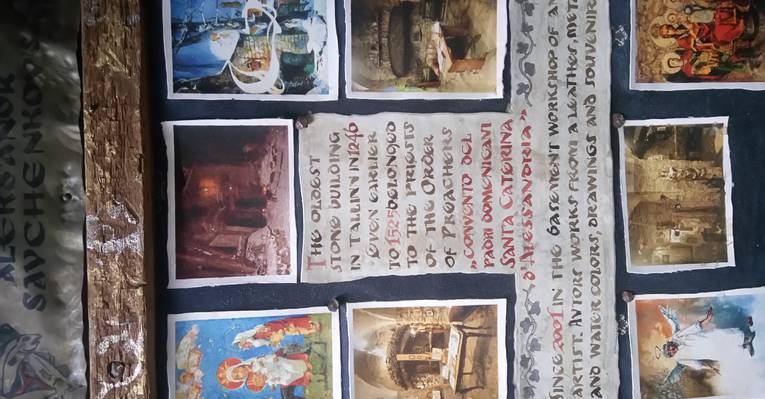 ALEKSANDR
SAVCHENKOV
THE OLDEST
STONE BUILDING
IN TALLINN IN 1246
EVEN EARLIER
TO 1525 BELONGED
TO THE PRIESTS
OF THE ORDER
OF PREACHERS
"CONVENTO DEI
PADRI DOMENICAVI
SANTA CATERINA
D'ALESSANDRIA"
SINCE 2001 IN THE BASEMENT WORKSHOP OF AN
ARTIST. AUTORS WORKS FROM A LEATHER, MET
AND WATER COLORS, DRAWINGS AND SOUVENIRS